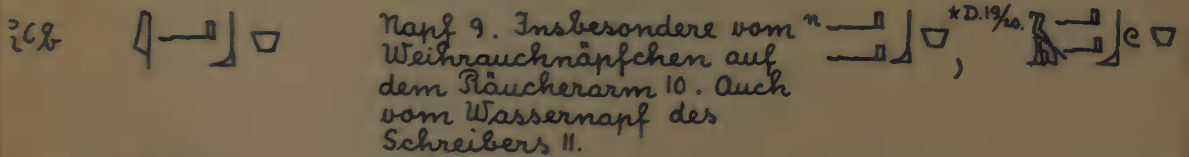 ꞽꜥb 𓇋𓂝𓃀 Napf 9. Insbesondere vom n 𓂝𓂝𓃀 , *D.19/20.
Weihrauchnäpfchen auf
dem Räucherarm 10. Auch
vom Wassernapf des
Schreibers 11.